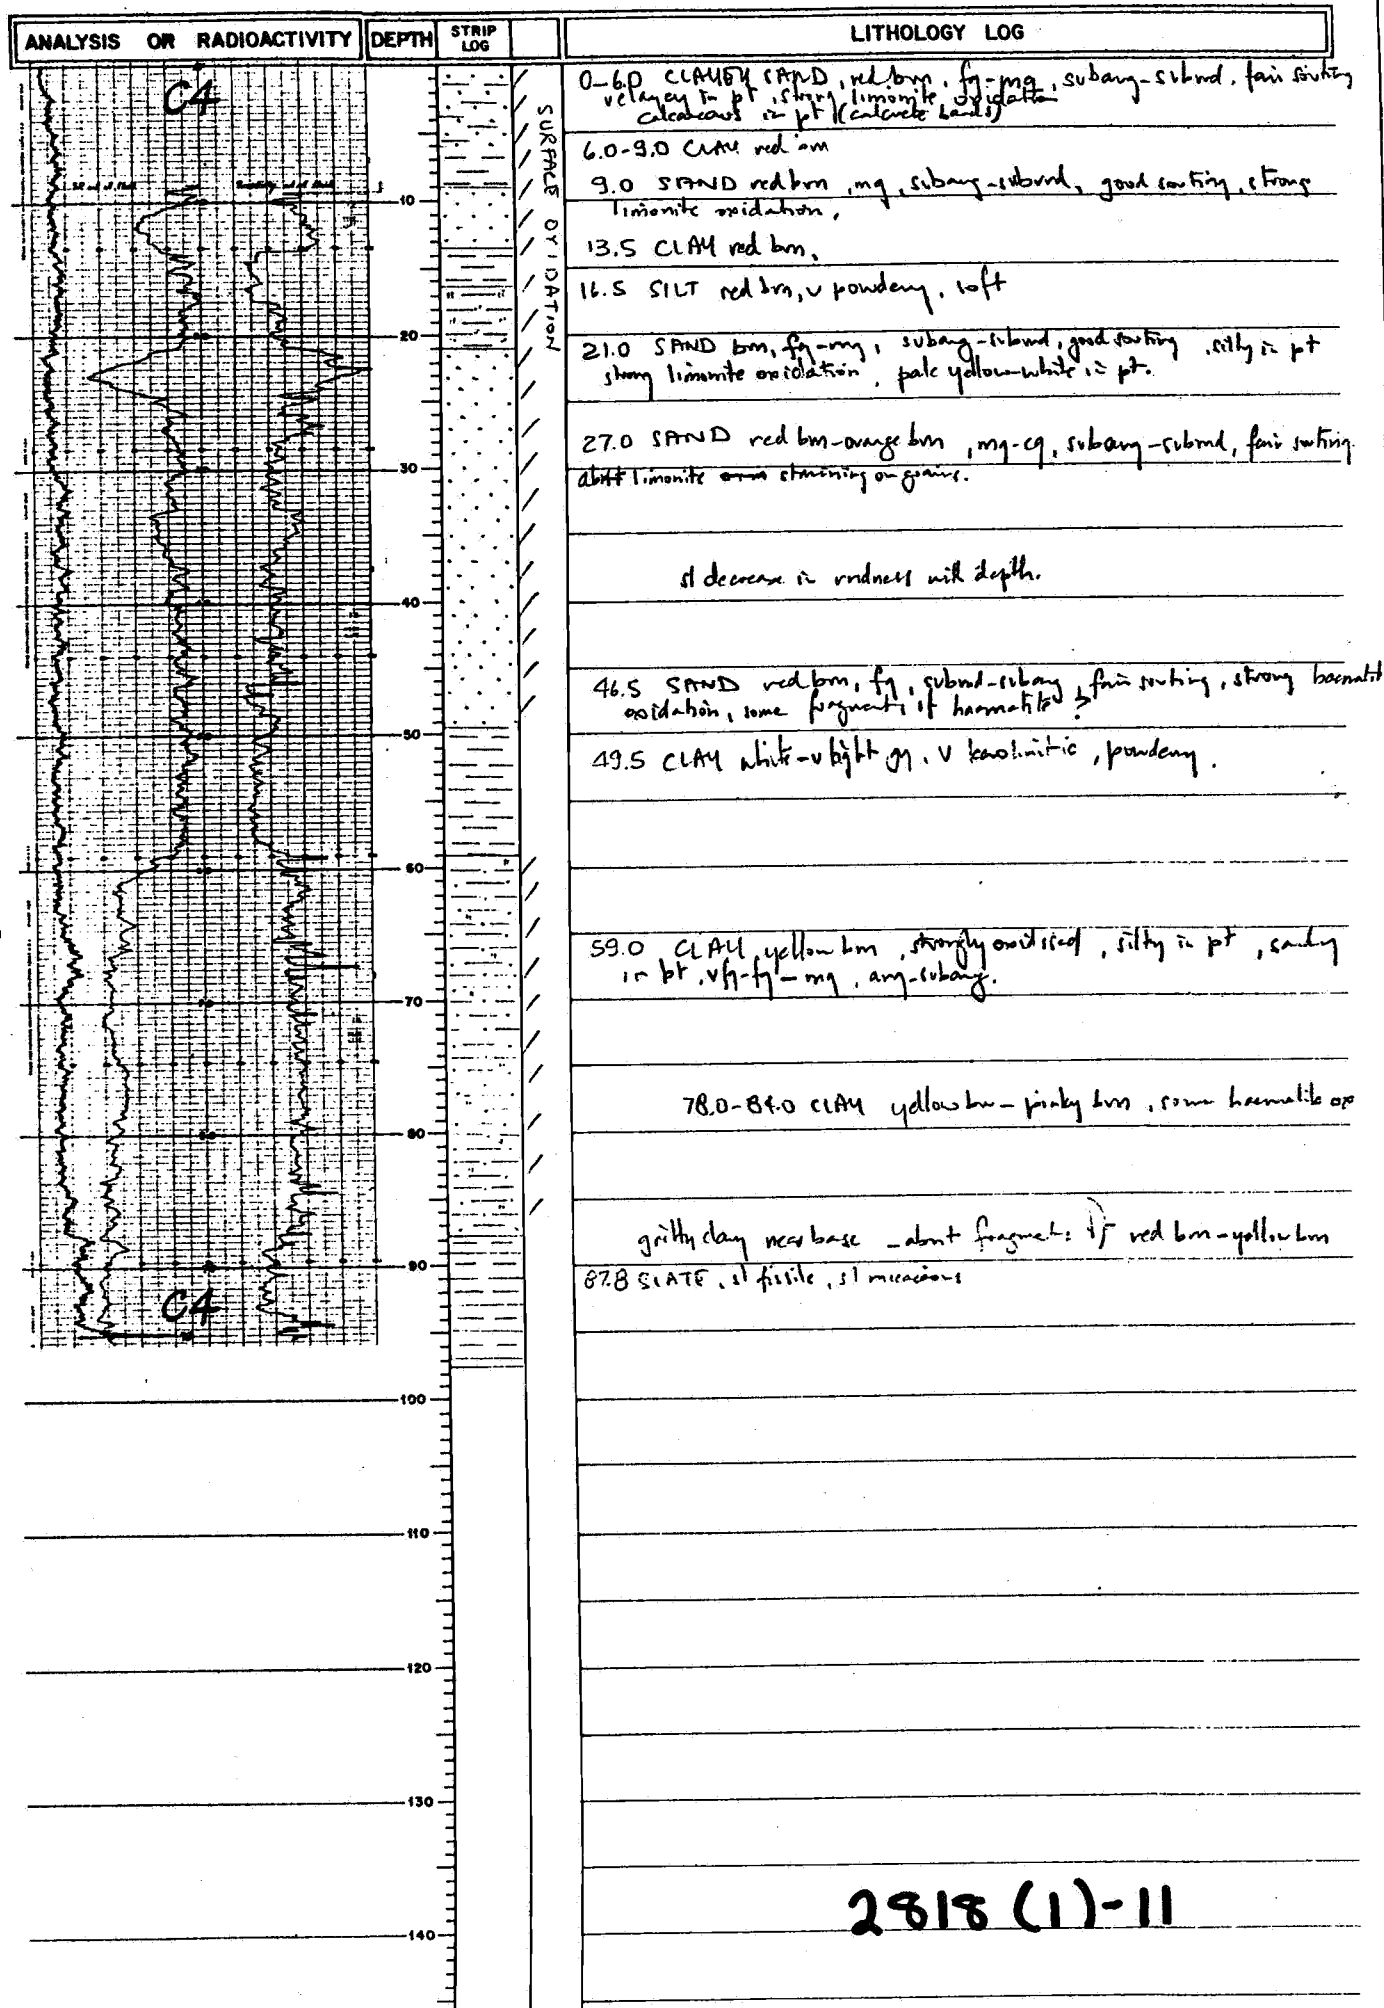 ANALYSIS OR RADIOACTIVITY DEPTH STRIP LOG LITHOLOGY LOG
C4
SURFACE OXIDATION
0-6.0 CLAYEY SAND, red brn, fg-mg, subang-subrnd, fair sorting
v clayey in pt, strong limonite oxidation
calcareous in pt (calcrete bands)
6.0-9.0 CLAY red brn
9.0 SAND red brn, mg, subang-subrnd, good sorting, strong
limonite oxidation,
13.5 CLAY red brn,
16.5 SILT red brn, v powdery, soft
21.0 SAND brn, fg-mg, subang-subrnd, good sorting, silty in pt
strong limonite oxidation, pale yellow-white in pt.
27.0 SAND red brn-orange brn, mg-cg, subang-subrnd, fair sorting.
abnt limonite staining on grains.
sl decrease in rndness with depth.
46.5 SAND red brn, fg, subrnd-subang, fair sorting, strong haematite
oxidation, some fragments of haematite?
49.5 CLAY white-v light gy, v kaolinitic, powdery.
59.0 CLAY yellow brn, strongly oxidised, silty in pt, sandy
in pt, vfg-fg-mg, ang-subang.
78.0-84.0 CLAY yellow brn - pinky brn, some haematite ox
gritty clay near base - abnt fragments of red brn-yellow brn
87.8 SLATE, sl fissile, sl micaceous
C4
10
20
30
40
50
60
70
80
90
100
110
120
130
140
2818(1)-11